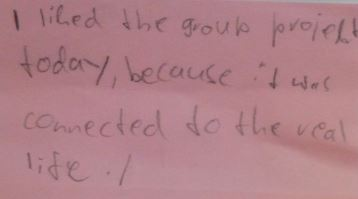 I liked the group projekt
today, because it was
connected to the real
life . /